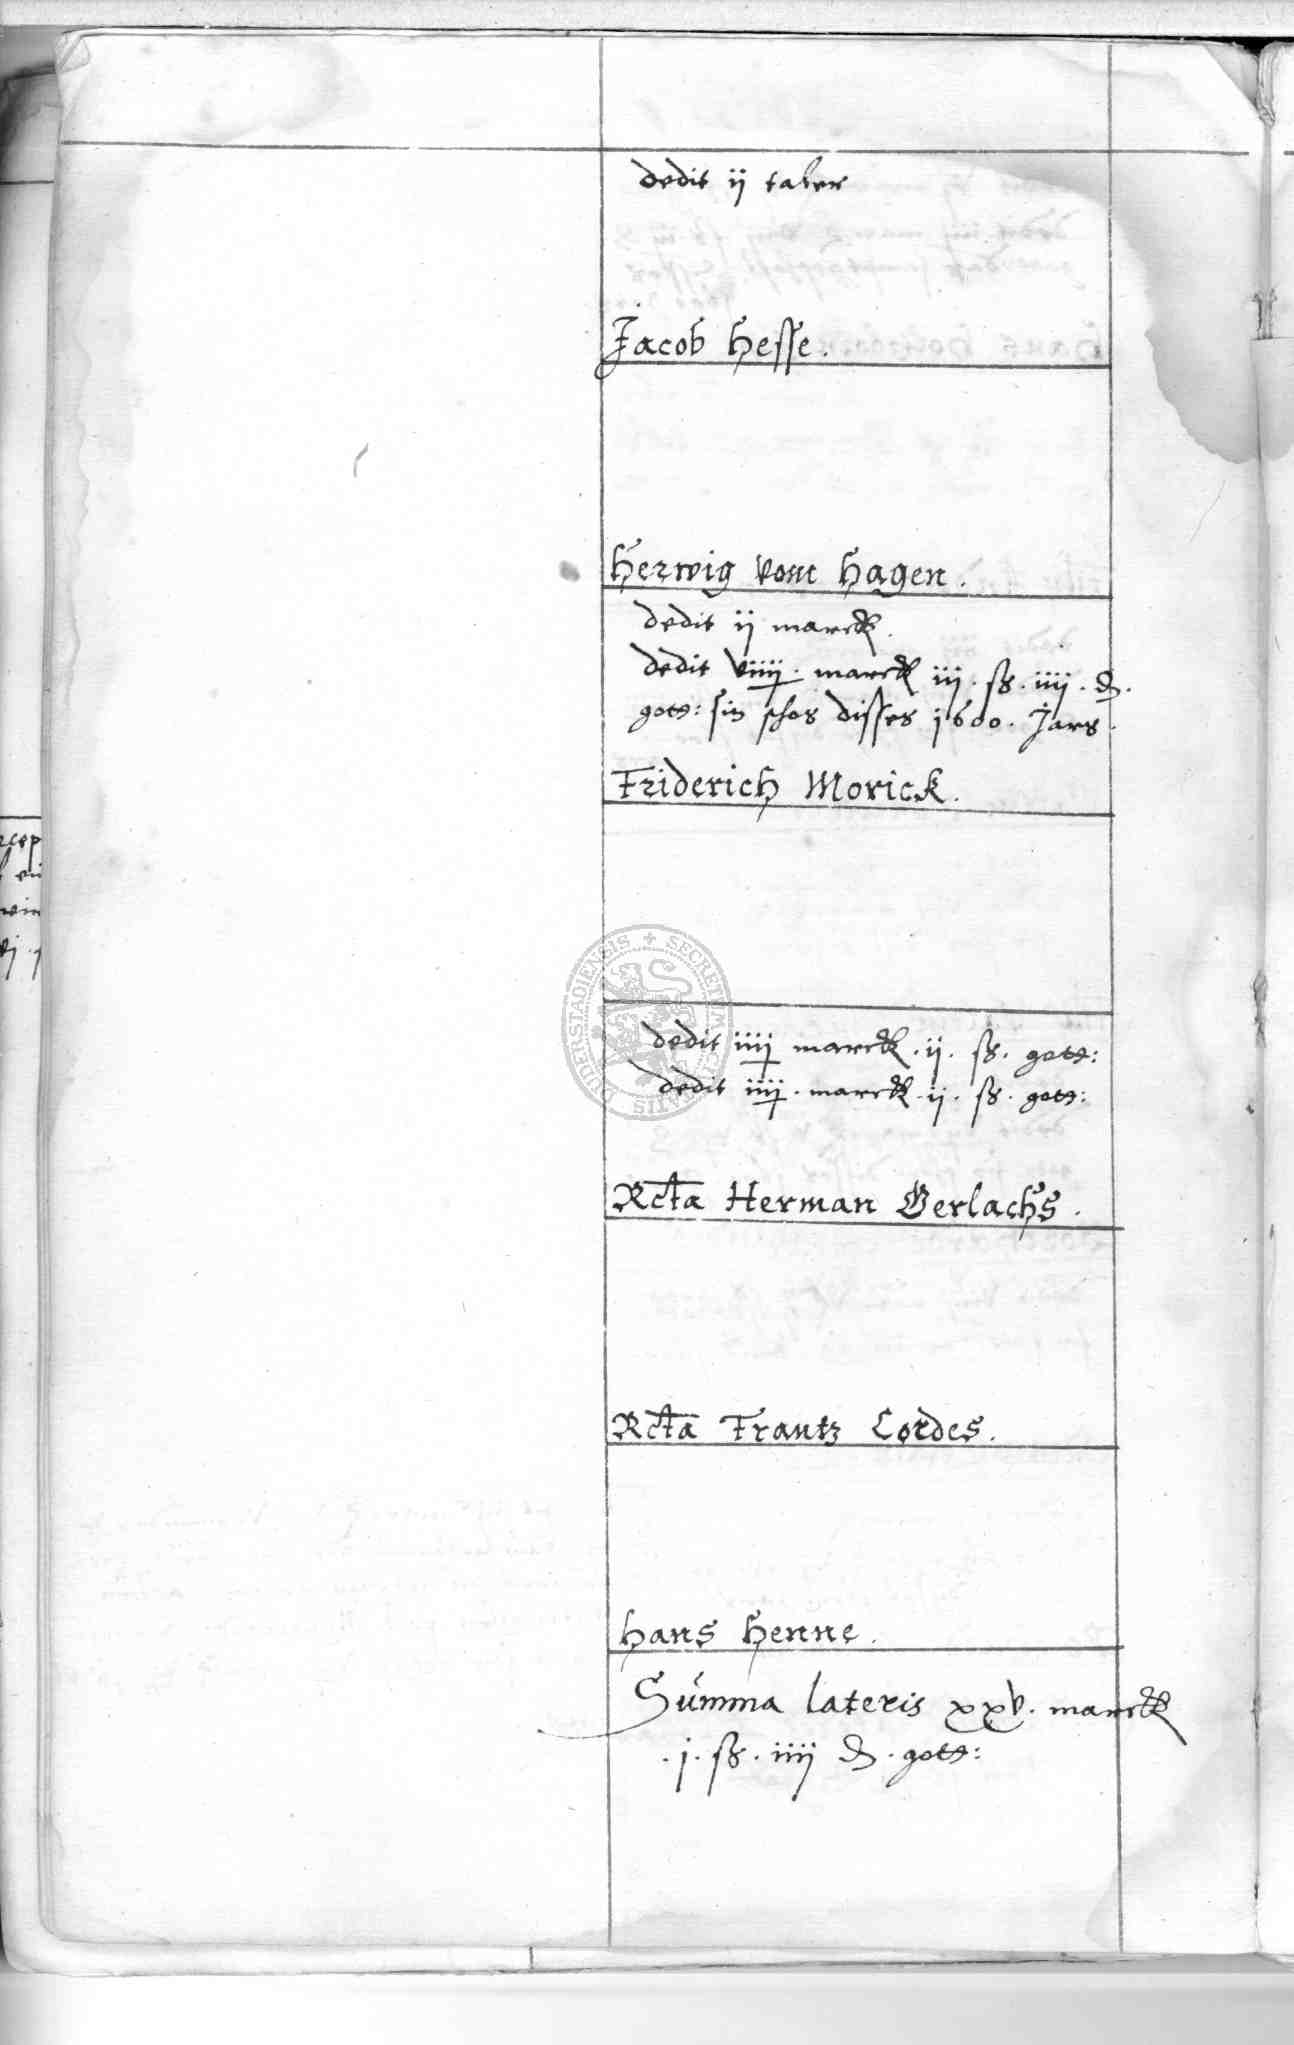 dedit ij taler
Jacob Hesse.
Herwig vom Hagen.
dedit ij marck.
dedit viiij. marck iij. ß. iiij. d.
gott: sin schos disses 1600. Jars.
Friderich Morick.
dedit iiij marck. ij. ß. gott:
dedit iiij. marck. ij. ß. gott:
Rcta Herman Gerlachs.
Rcta Frantz Cordes.
Hans Henne.
Summa lateris xxv. marck
. j. ß. iiij d. gott:
DUDERSTADIENSIS + SECRETUM CIVITATIS